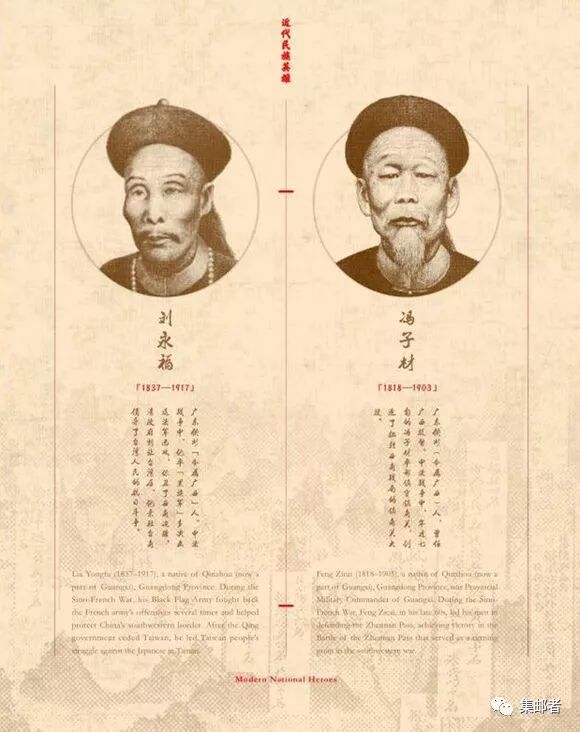 近代民族英雄
刘永福
「1837—1917」
广东钦州（今属广西）人。中法
战争中，他率「黑旗军」多次击
退法军进攻，保卫了西南边疆。
清政府割让台湾后，他亲赴台南
领导了台湾人民的抗日斗争。
Liu Yongfu (1837–1917), a native of Qinzhou (now a
part of Guangxi), Guangdong Province. During the
Sino-French War, his Black Flag Army fought back
the French army's offensives several times and helped
protect China's southwestern border. After the Qing
government ceded Taiwan, he led Taiwan people's
struggle against the Japanese in Tainan.
冯子材
「1818—1903」
广东钦州（今属广西）人，曾任
广西提督。中法战争中，年近七
旬的冯子材率部镇守镇南关，创
造了扭转西南战局的镇南关大
捷。
Feng Zicai (1818–1903), a native of Qinzhou (now a
part of Guangxi), Guangdong Province, was Provincial
Military Commander of Guangxi. During the Sino-
French War, Feng Zicai, in his late 60s, led his men in
defending the Zhennan Pass, achieving victory in the
Battle of the Zhennan Pass that served as a turning
point in the southwestern war.
Modern National Heroes
集邮者